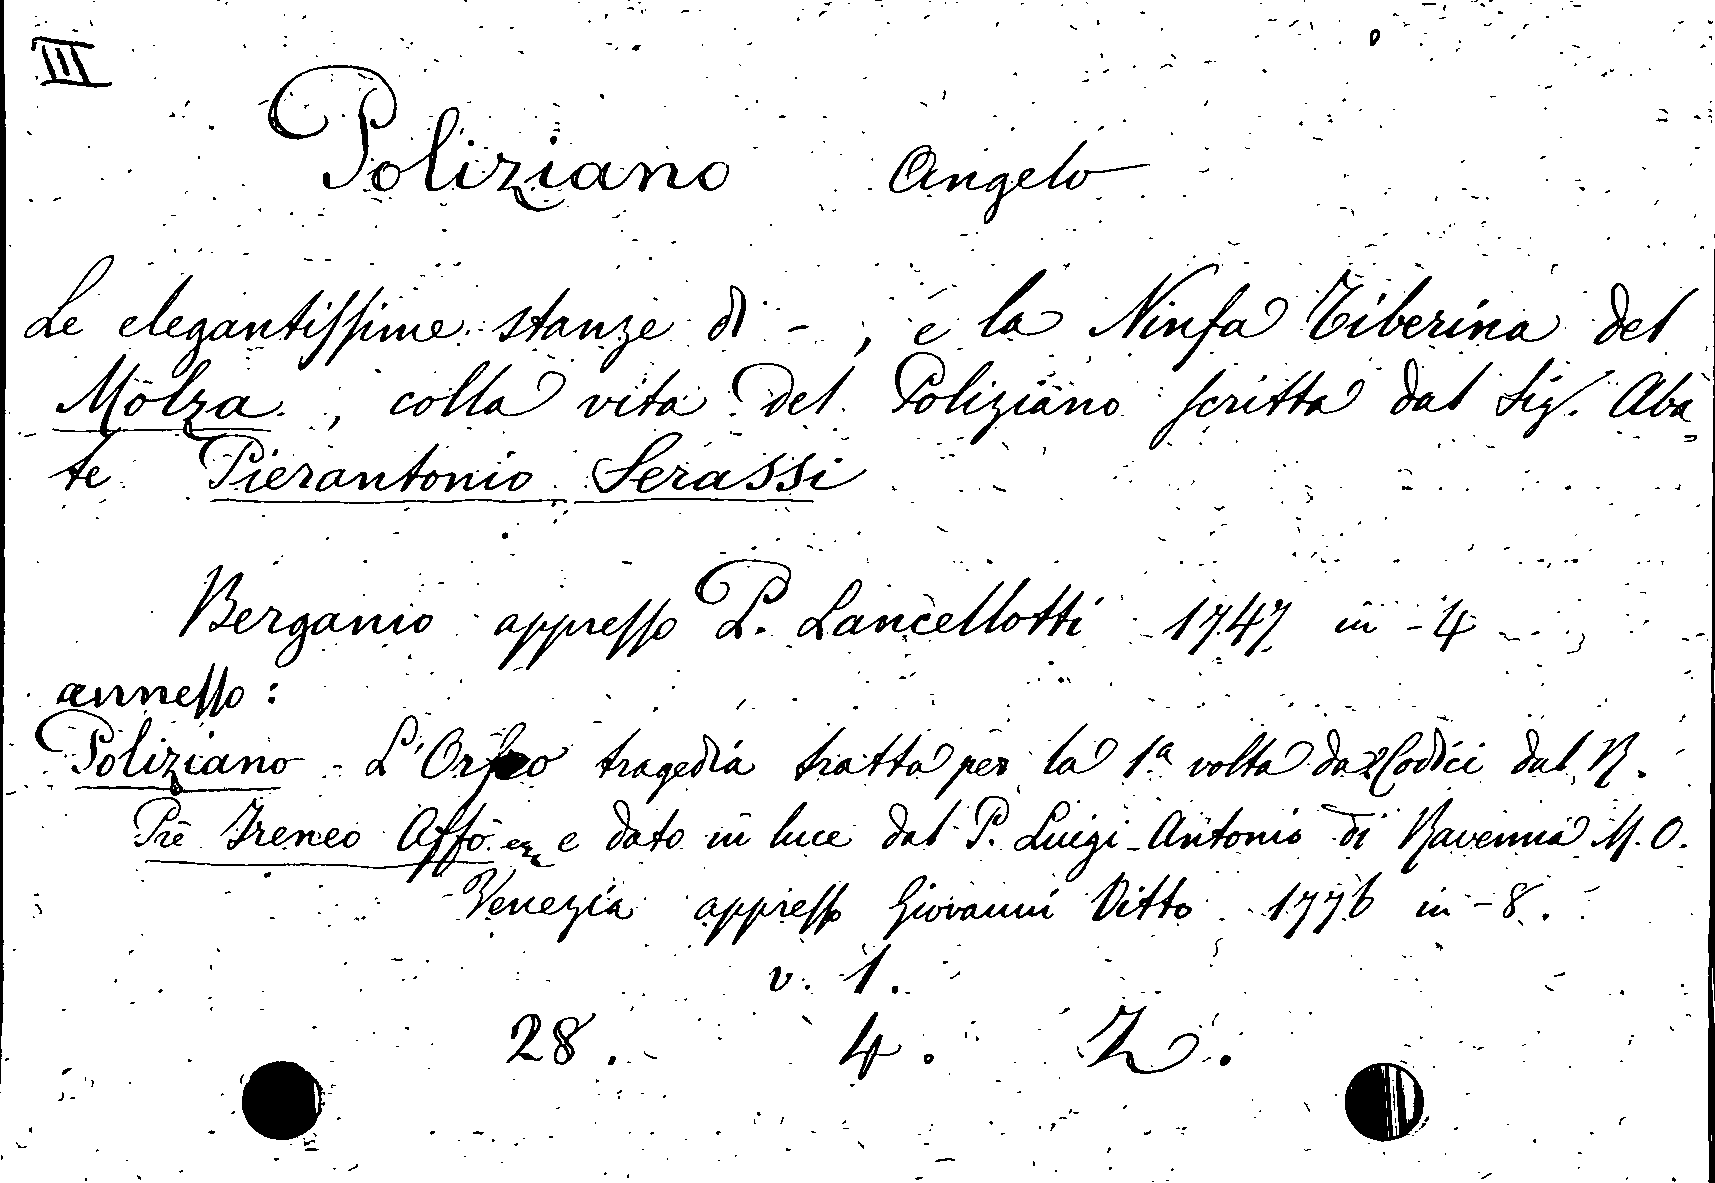 III
Poliziano Angelo
Le elegantissime stanze di - , e la Ninfa Tiberina del
Molza , colla vita del Poliziano scritta dal Sig. Aba
te Pierantonio Serassi
Bergamo appresso P. Lancellotti 1747 in - 4
annesso :
Poliziano - L'Orfeo tragedia tratta per la 1ª volta da 2 Codici dal R.
Pre Ireneo Affò e dato in luce dal P. Luigi Antonio di Ravenna M. O.
Venezia appresso Giovanni Vitto 1776 in - 8 .
v. 1 .
28 . 4 . Z .